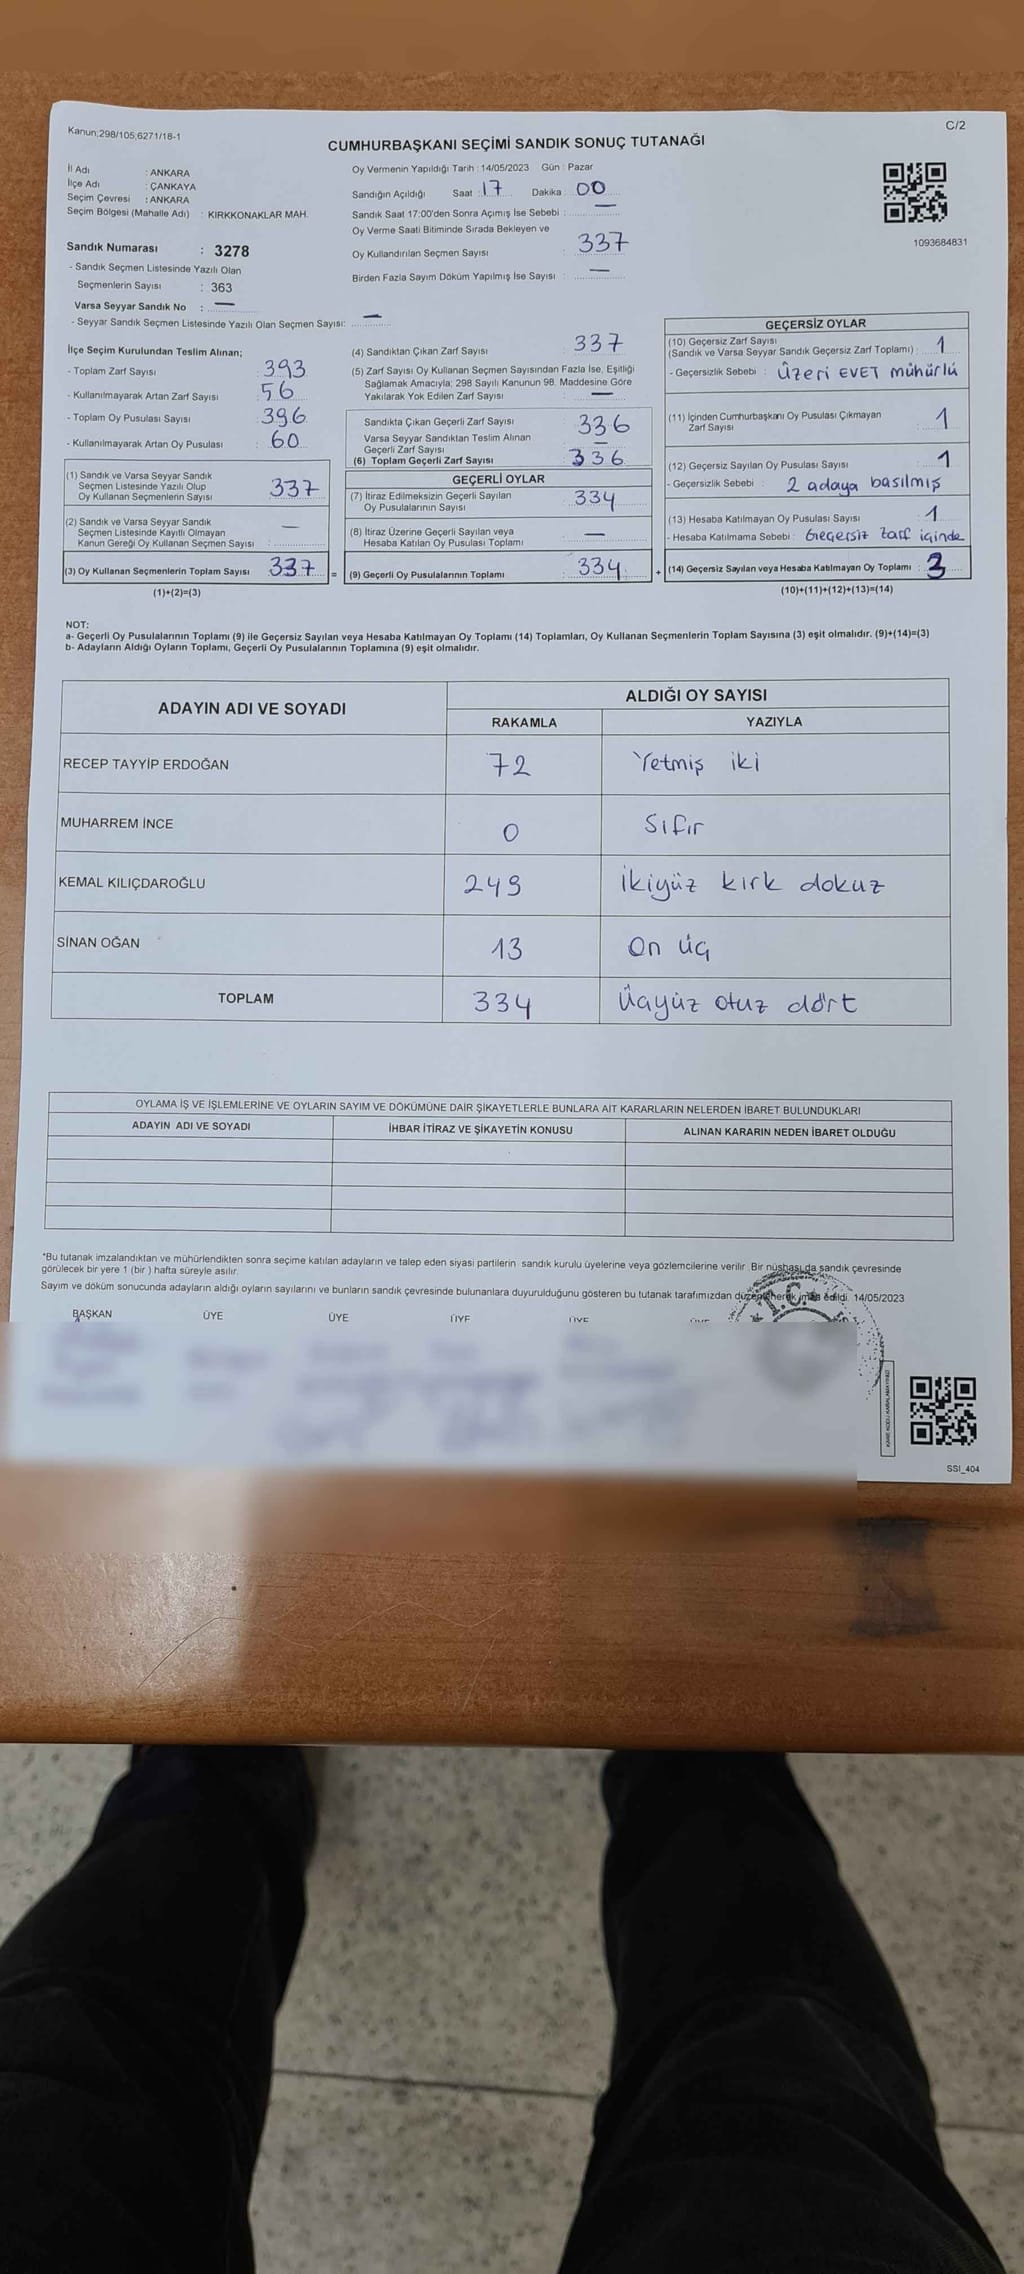 Kanun;298/105,6271/18-1
C/2
CUMHURBAŞKANI SEÇİMİ SANDIK SONUÇ TUTANAĞI
İl Adı : ANKARA
İlçe Adı : ÇANKAYA
Seçim Çevresi : ANKARA
Seçim Bölgesi (Mahalle Adı) : KIRKKONAKLAR MAH.
Sandık Numarası : 3278
- Sandık Seçmen Listesinde Yazılı Olan
Seçmenlerin Sayısı : 363
Varsa Seyyar Sandık No : —
- Seyyar Sandık Seçmen Listesinde Yazılı Olan Seçmen Sayısı: —
Oy Vermenin Yapıldığı Tarih : 14/05/2023 Gün : Pazar
Sandığın Açıldığı Saat : 17 Dakika : 00
Sandık Saat 17:00'den Sonra Açımış İse Sebebi : —
Oy Verme Saati Bitiminde Sırada Bekleyen ve
Oy Kullandırılan Seçmen Sayısı : 337
Birden Fazla Sayım Döküm Yapılmış İse Sayısı : —
1093684831
İlçe Seçim Kurulundan Teslim Alınan;
- Toplam Zarf Sayısı : 393
- Kullanılmayarak Artan Zarf Sayısı : 56
- Toplam Oy Pusulası Sayısı : 396
- Kullanılmayarak Artan Oy Pusulası : 60
(1) Sandık ve Varsa Seyyar Sandık
Seçmen Listesinde Yazılı Olup
Oy Kullanan Seçmenlerin Sayısı : 337
(2) Sandık ve Varsa Seyyar Sandık
Seçmen Listesinde Kayıtlı Olmayan
Kanun Gereği Oy Kullanan Seçmen Sayısı : —
(3) Oy Kullanan Seçmenlerin Toplam Sayısı : 337 =
(1)+(2)=(3)
(4) Sandıktan Çıkan Zarf Sayısı : 337
(5) Zarf Sayısı Oy Kullanan Seçmen Sayısından Fazla İse, Eşitliği
Sağlamak Amacıyla; 298 Sayılı Kanunun 98. Maddesine Göre
Yakılarak Yok Edilen Zarf Sayısı : —
Sandıkta Çıkan Geçerli Zarf Sayısı : 336
Varsa Seyyar Sandıktan Teslim Alınan
Geçerli Zarf Sayısı : —
(6) Toplam Geçerli Zarf Sayısı : 336
GEÇERLİ OYLAR
(7) İtiraz Edilmeksizin Geçerli Sayılan
Oy Pusulalarının Sayısı : 334
(8) İtiraz Üzerine Geçerli Sayılan veya
Hesaba Katılan Oy Pusulası Toplamı : —
(9) Geçerli Oy Pusulalarının Toplamı : 334 +
GEÇERSİZ OYLAR
(10) Geçersiz Zarf Sayısı
(Sandık ve Varsa Seyyar Sandık Geçersiz Zarf Toplamı) : 1
- Geçersizlik Sebebi : Üzeri EVET mühürlü
(11) İçinden Cumhurbaşkanı Oy Pusulası Çıkmayan
Zarf Sayısı : 1
(12) Geçersiz Sayılan Oy Pusulası Sayısı : 1
- Geçersizlik Sebebi : 2 adaya basılmış
(13) Hesaba Katılmayan Oy Pusulası Sayısı : 1
- Hesaba Katılmama Sebebi : Geçersiz zarf içinde
(14) Geçersiz Sayılan veya Hesaba Katılmayan Oy Toplamı : 3
(10)+(11)+(12)+(13)=(14)
NOT:
a- Geçerli Oy Pusulalarının Toplamı (9) ile Geçersiz Sayılan veya Hesaba Katılmayan Oy Toplamı (14) Toplamları, Oy Kullanan Seçmenlerin Toplam Sayısına (3) eşit olmalıdır. (9)+(14)=(3)
b- Adayların Aldığı Oyların Toplamı, Geçerli Oy Pusulalarının Toplamına (9) eşit olmalıdır.
ADAYIN ADI VE SOYADI
ALDIĞI OY SAYISI
RAKAMLA YAZIYLA
RECEP TAYYİP ERDOĞAN 72 Yetmiş iki
MUHARREM İNCE 0 Sıfır
KEMAL KILIÇDAROĞLU 249 İkiyüz kırk dokuz
SİNAN OĞAN 13 On üç
TOPLAM 334 Üçyüz otuz dört
OYLAMA İŞ VE İŞLEMLERİNE VE OYLARIN SAYIM VE DÖKÜMÜNE DAİR ŞİKAYETLERLE BUNLARA AİT KARARLARIN NELERDEN İBARET BULUNDUKLARI
ADAYIN ADI VE SOYADI İHBAR İTİRAZ VE ŞİKAYETİN KONUSU ALINAN KARARIN NEDEN İBARET OLDUĞU
*Bu tutanak imzalandıktan ve mühürlendikten sonra seçime katılan adayların ve talep eden siyasi partilerin sandık kurulu üyelerine veya gözlemcilerine verilir. Bir nüshası da sandık çevresinde
görülecek bir yere 1 (bir) hafta süreyle asılır.
Sayım ve döküm sonucunda adayların aldığı oyların sayılarını ve bunların sandık çevresinde bulunanlara duyurulduğunu gösteren bu tutanak tarafımızdan düzenlenerek imza edildi. 14/05/2023
BAŞKAN ÜYE ÜYE ÜYE ÜYE ÜYE
T.C.
KARE KODU KARALAMAYINIZ!
SSI_404